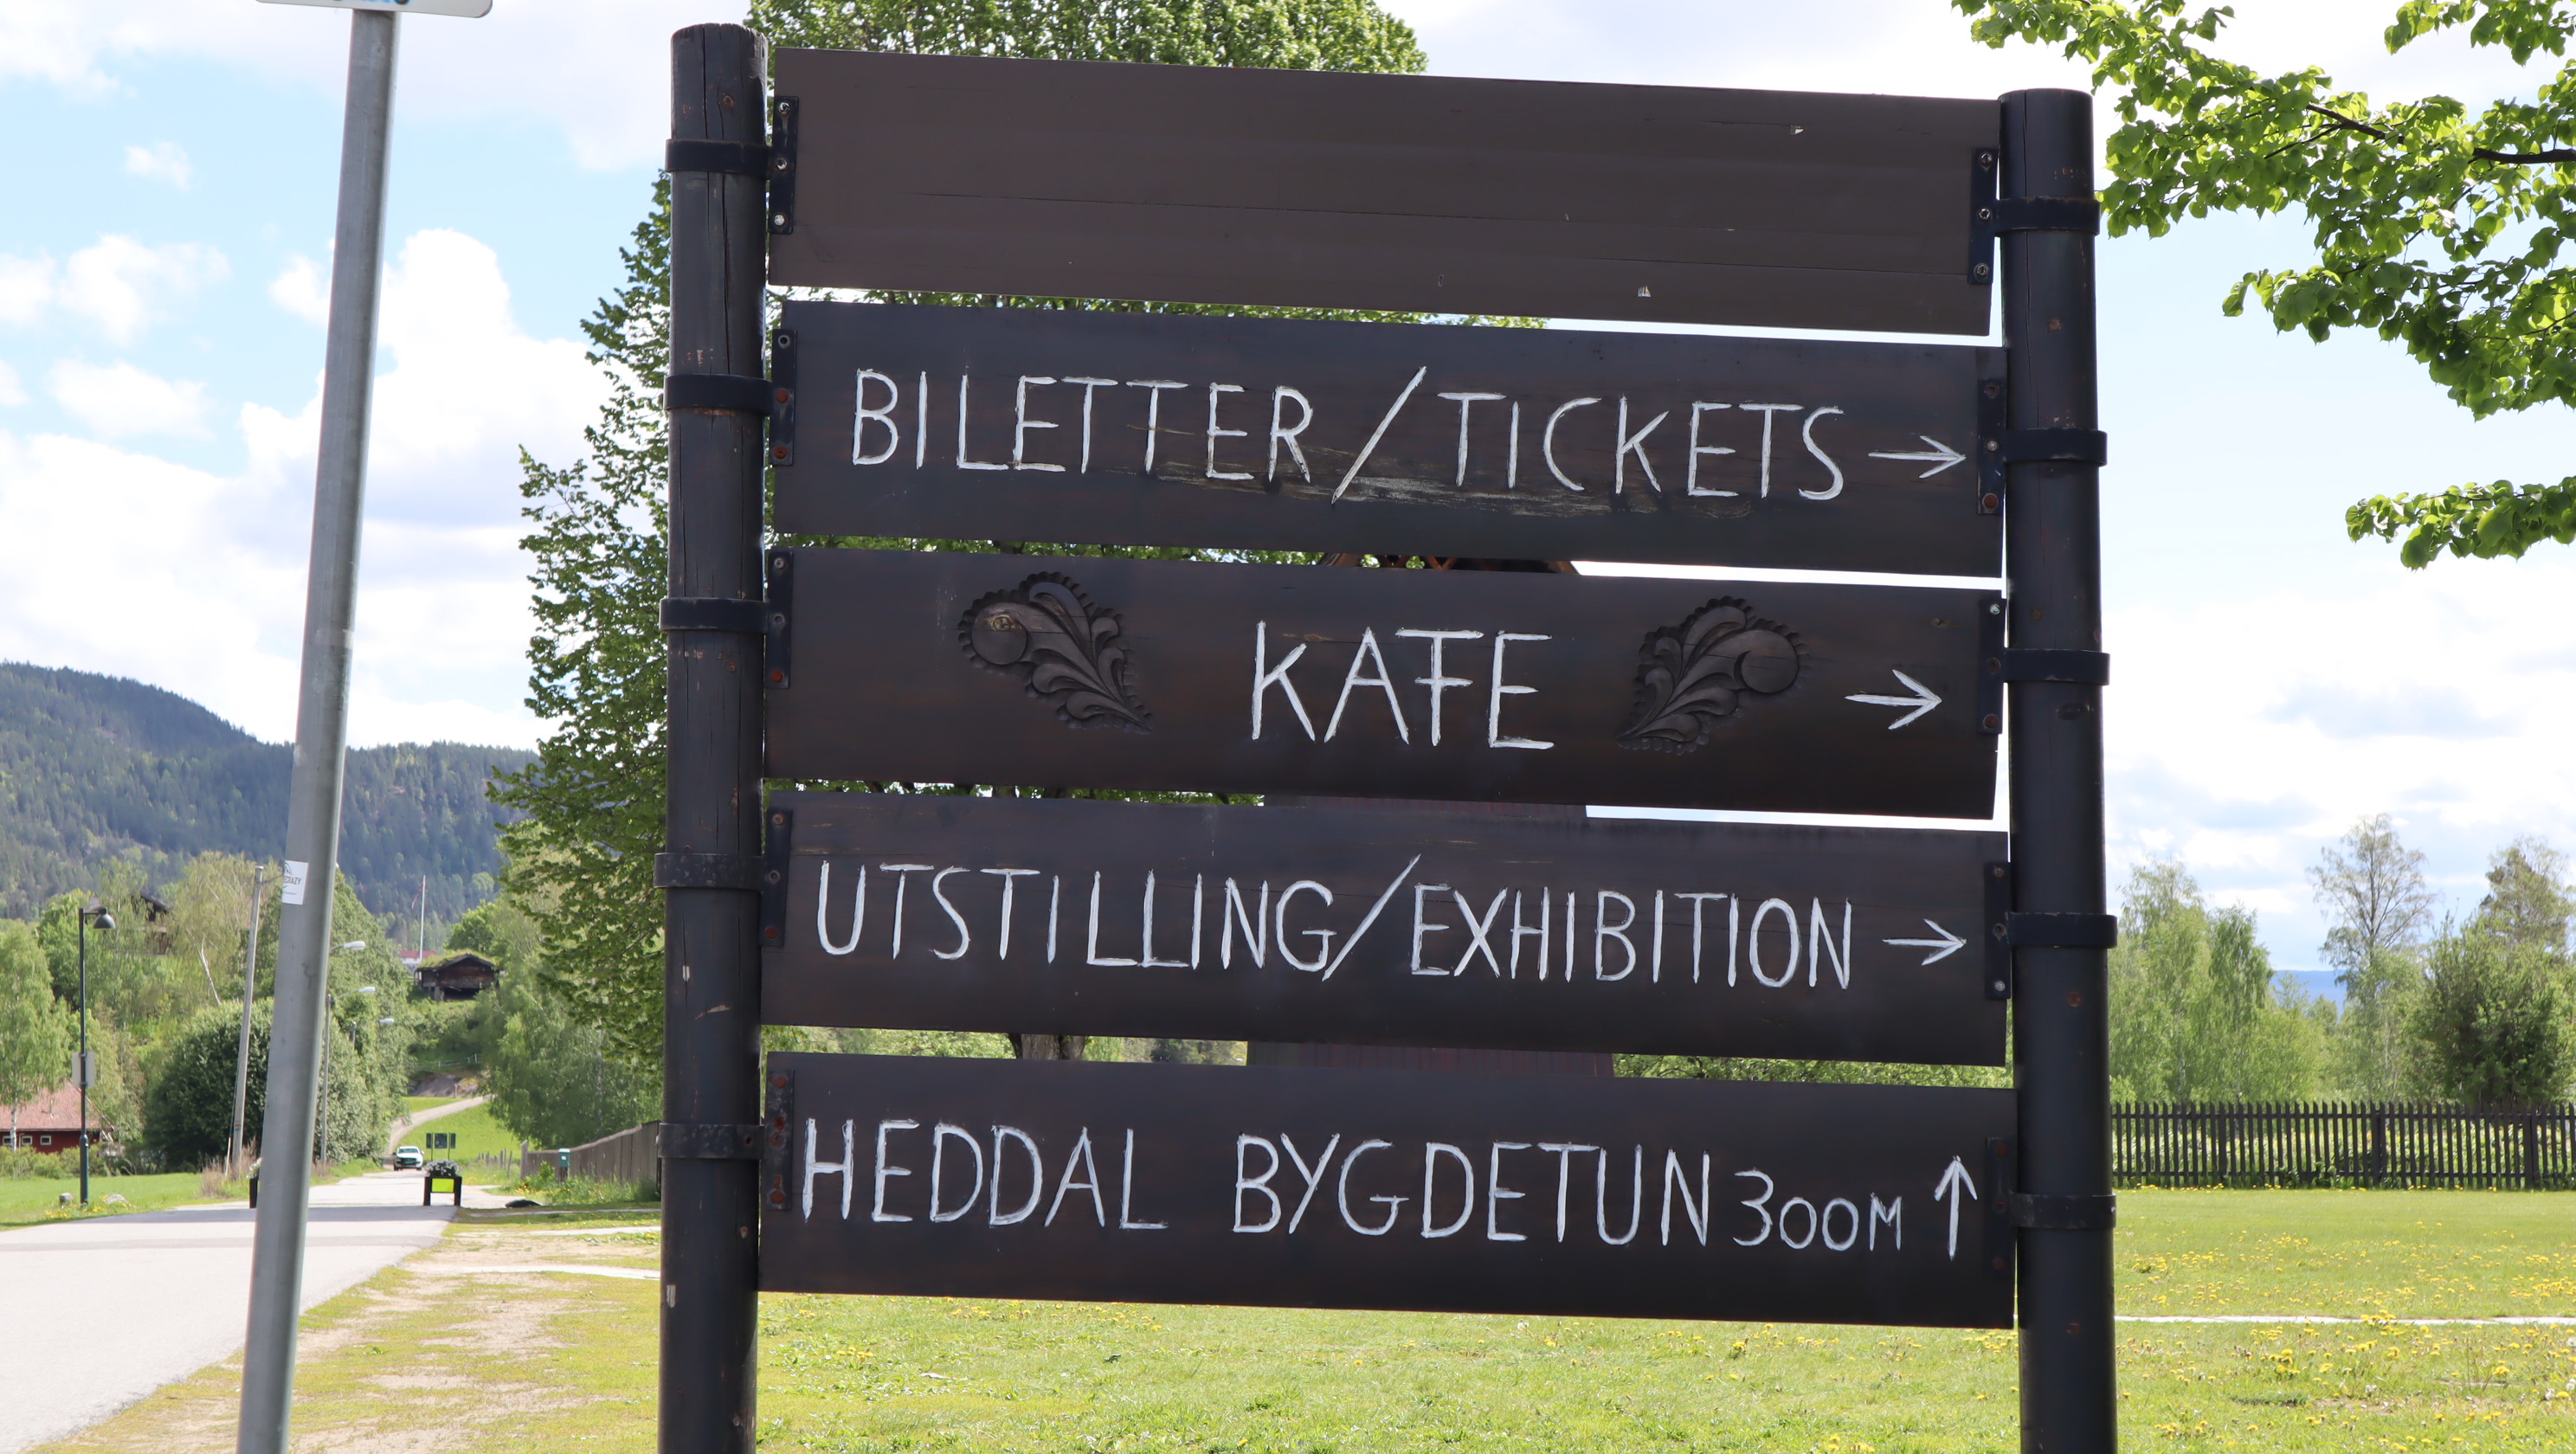 BILETTER/TICKETS →
KAFE →
UTSTILLING/EXHIBITION →
HEDDAL BYGDETUN 300M ↑